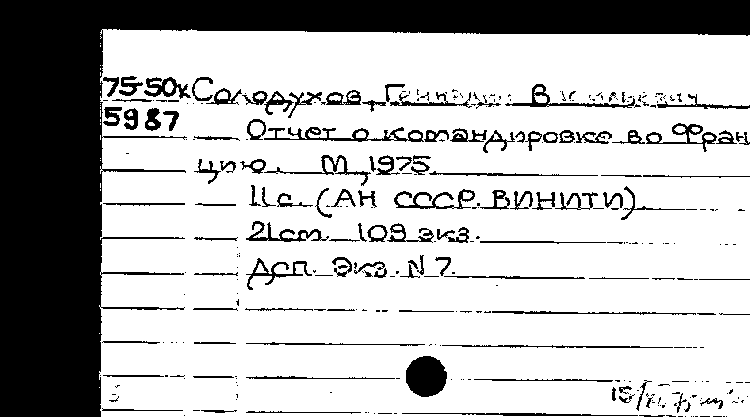 75-50к Солодухов, Геннадий Васильевич
5987 Отчет о командировке во Фран
цию. М., 1975.
11с. (АН СССР. ВИНИТИ).
21см. 109 экз.
Дсп. Экз. N 7.